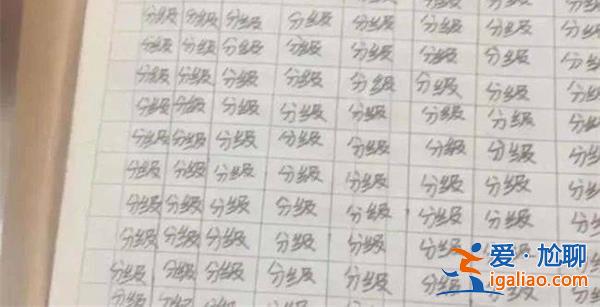 分级 分级 分级 分级 分级 分级 分级 分级
分级 分级 分级 分级 分级 分级 分级 分级
分级 分级 分级 分级 分级 分级 分级 分级
分级 分级 分级 分级 分级 分级 分级 分级
分级 分级 分级 分级 分级 分级 分级 分级
分级 分级 分级 分级 分级 分级 分级 分级
分级 分级 分级 分级 分级 分级 分级 分级
分级 分级 分级 分级 分级 分级
分级 分级 分级 分级 分级 分级
分级 分级 分级 分级 分级 分级
爱·尬聊
igaliao.com